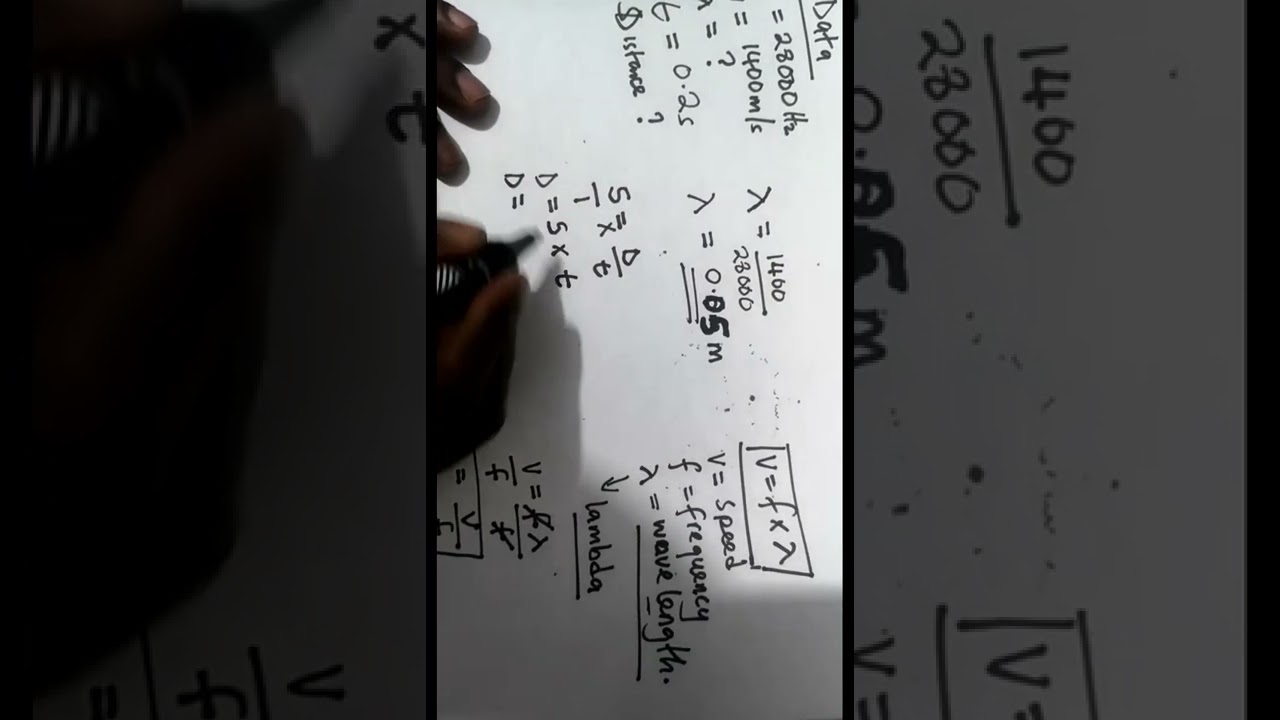 Data
= 28000Hz
= 1400m/s
= ?
t = 0.2s
Distance ?
λ = 1400
28000
λ = 0.05m
S = D
1 × t
D = S x t
D =
V = f x λ
V = speed
f = frequency
λ = wavelength.
↓ lambda
V = fλ
f f
= V
f
x t
1400
28000
0.05m
V =
V =
V
f
=